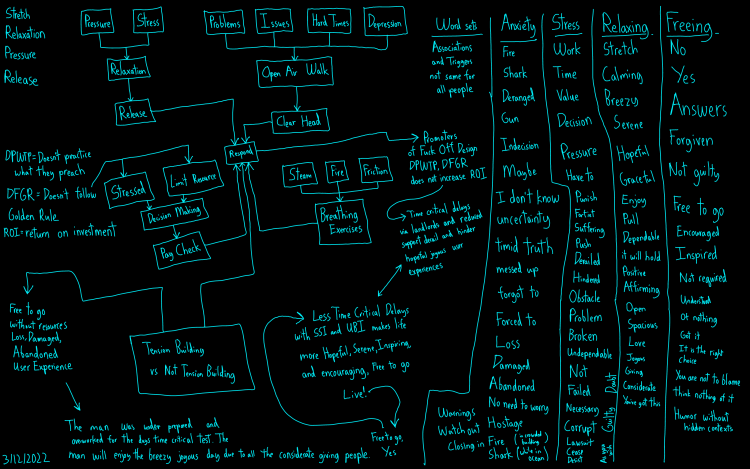 Stretch
Relaxation
Pressure
Release
Pressure
Stress
Relaxation
Release
Problems
Issues
Hard Times
Depression
Open Air Walk
Clear Head
Respond
DPWTP=Doesn't practice
what they preach
DFGR = Doesn't follow
Golden Rule
ROI=return on investment
Stressed
Limit Resource
Decision Making
Pay Check
Steam
Fire
Friction
Breathing
Exercises
Promoters
of Fuck Off Design
DPWTP, DFGR
does not increase ROI
Time critical delays
via landlords and reduced
support detail and hinder
hopeful joyous user
experiences
Free to go
without resources
Loss, Damaged,
Abandoned
User Experience
Tension Building
vs Not Tension Building
Less Time Critical Delays
with SSI and UBI makes life
more Hopeful, Serene, Inspiring,
and encouraging, Free to go
Live!
Free to go,
Yes
The man was under prepared and
overworked for the days time critical test. The
man will enjoy the breezy joyous day due to all the considerate giving people.
3/12/2022
Word sets
Associations
and Triggers
not same for
all people.
Warnings
Watch out
Closing in
Anxiety
Fire
Shark
Deranged
Gun
Indecision
Maybe
I don't know
uncertainty
timid truth
messed up
forgot to
Forced to
Loss
Damaged
Abandoned
No need to worry
Hostage
Fire (in crowded building)
Shark (while in ocean)
Stress
Work
Time
Value
Decision
Pressure
Have to
Punish
Suffering
Push
Derailed
Hindered
Obstacle
Problem
Broken
Undependable
Not
Failed
Necessary
Corrupt
Lawsuit
Doubt
Guilty
Relaxing
Stretch
Calming
Breezy
Serene
Hopeful
Graceful
Enjoy
Pull
Dependable
it will hold
Positive
Affirming
Open
Spacious
Love
Joyous
Giving
Considerate
You've got this
Freeing
No
Yes
Answers
Forgiven
Not guilty
Free to go
Encouraged
Inspired
Not required
Understood
Of nothing
Got it
It is the right
choice
You are not to blame
think nothing of it
Humor without
hidden contexts